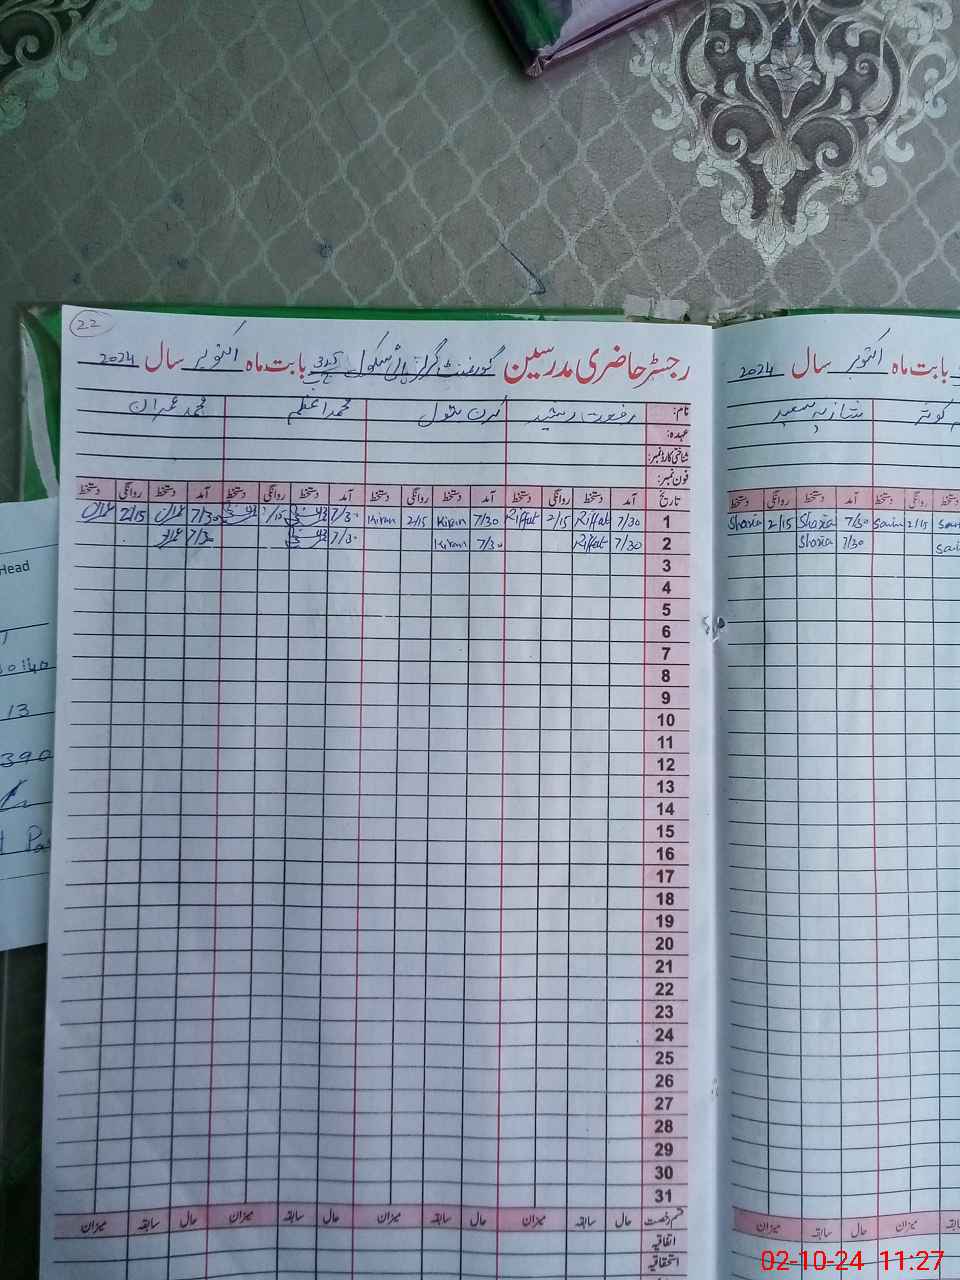 22
رجسٹر حاضری مدرسین گورنمنٹ گرلز ہائی سکول 315 بابت ماہ اکتوبر سال 2024
نام: رفعت رشید کرن بتول محمد اعظم محمد عمران
عہدہ:
شناختی کارڈ نمبر:
فون نمبر:
تاریخ آمد دستخط روانگی دستخط آمد دستخط روانگی دستخط آمد دستخط روانگی دستخط آمد دستخط روانگی دستخط
1 7/30 Riffat 2/15 Riffat 7/30 Kiran 2/15 Kiran 7/30 7/30 عمران 2/15 عمران
2 7/30 Riffat 7/30 Kiran 7/30 7/30 عمران
3
4
5
6
7
8
9
10
11
12
13
14
15
16
17
18
19
20
21
22
23
24
25
26
27
28
29
30
31
قسم رخصت حال سابقہ میزان حال سابقہ میزان حال سابقہ میزان حال سابقہ میزان
اتفاقیہ
استحقاقیہ
بابت ماہ اکتوبر سال 2024
شازیہ سعید
دستخط روانگی دستخط آمد دستخط روانگی دستخط
7/30 Shazia 2/15 Shazia
7/30 Shazia
میزان سابقہ حال میزان
Head
13
390
02-10-24 11:27